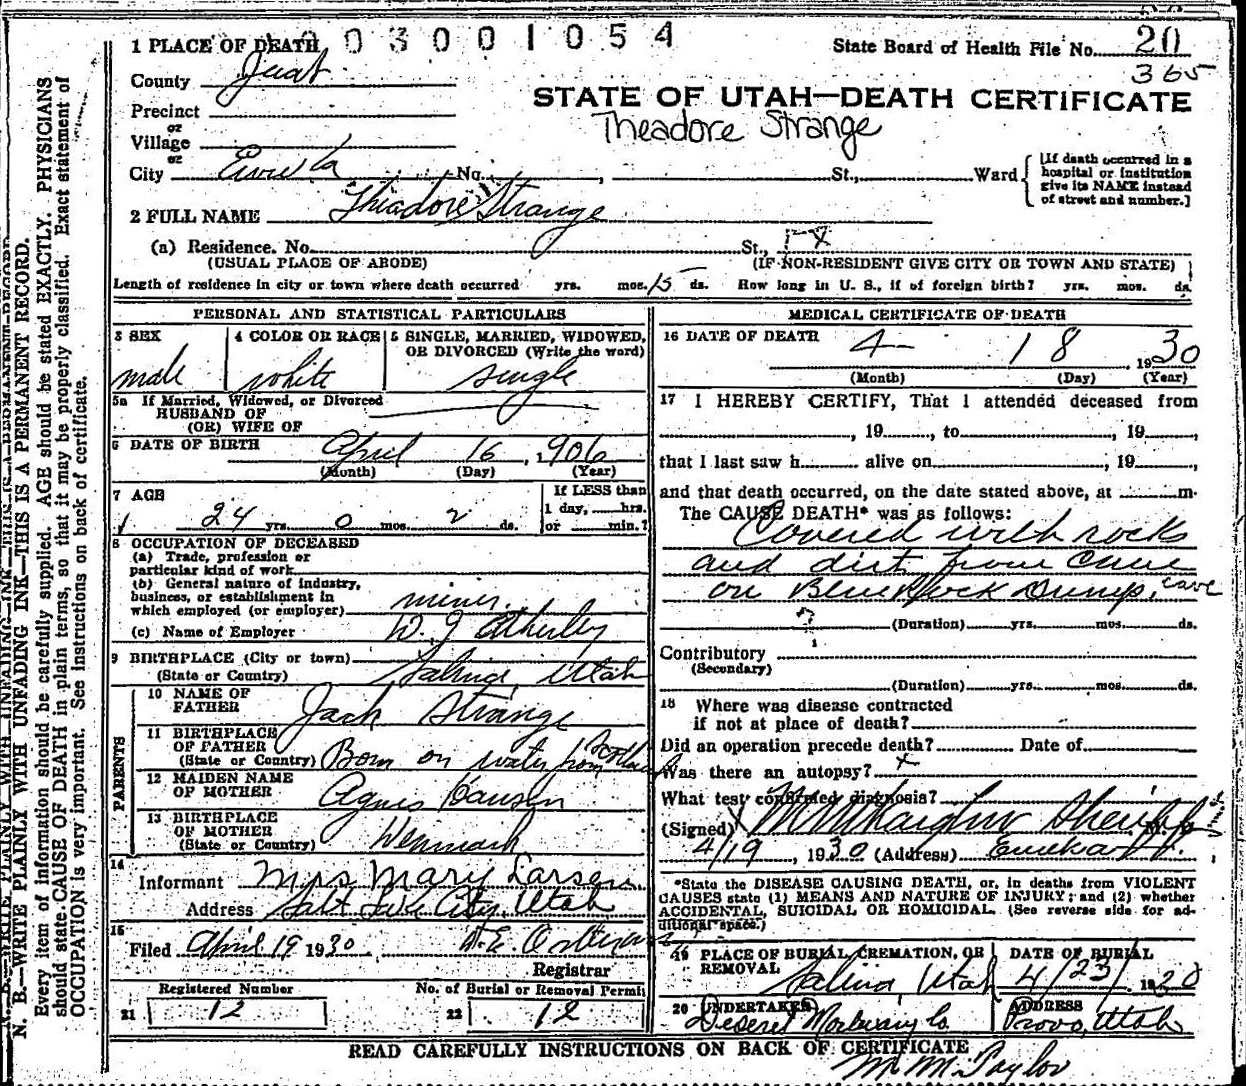 003001054
1 PLACE OF DEATH
State Board of Health File No. 20
365
County Juab
STATE OF UTAH—DEATH CERTIFICATE
Precinct
Theadore Strange
or
Village
or
City Eureka No. , St., Ward
[If death occurred in a hospital or institution give its NAME instead of street and number.]
2 FULL NAME Theadore Strange
(a) Residence. No. St.,
(USUAL PLACE OF ABODE) (IF NON-RESIDENT GIVE CITY OR TOWN AND STATE)
Length of residence in city or town where death occurred yrs. mos. 15 ds. How long in U. S., if of foreign birth? yrs. mos. ds.
PERSONAL AND STATISTICAL PARTICULARS
3 SEX
male
4 COLOR OR RACE
white
5 SINGLE, MARRIED, WIDOWED, OR DIVORCED (Write the word)
single
5a If Married, Widowed, or Divorced
HUSBAND OF
(OR) WIFE OF
6 DATE OF BIRTH April 16, 1906
(Month) (Day) (Year)
7 AGE
24 yrs. 0 mos. 2 ds.
If LESS than
1 day, hrs.
or min.?
8 OCCUPATION OF DECEASED
(a) Trade, profession or
particular kind of work
(b) General nature of industry,
business, or establishment in
which employed (or employer) miner
(c) Name of Employer W. J. Etherley
9 BIRTHPLACE (City or town)
(State or Country) Salina Utah
PARENTS
10 NAME OF
FATHER Jack Strange
11 BIRTHPLACE
OF FATHER
(State or Country) Born on water from Scotland
12 MAIDEN NAME
OF MOTHER Agnes Hansen
13 BIRTHPLACE
OF MOTHER
(State or Country) Denmark
14
Informant Mrs Mary Larsen
Address Salt Lake City, Utah
15
Filed April 19 1930
Registrar
Registered Number
21 12
No. of Burial or Removal Permit
22 12
MEDICAL CERTIFICATE OF DEATH
16 DATE OF DEATH 4 18 1930
(Month) (Day) (Year)
17 I HEREBY CERTIFY, That I attended deceased from
, 19 , to , 19 ,
that I last saw h alive on , 19
and that death occurred, on the date stated above, at m.
The CAUSE DEATH* was as follows:
Covered with rocks
and dirt from cave
on Blue Rock Dump. cave
(Duration) yrs. mos. ds.
Contributory
(Secondary)
(Duration) yrs. mos. ds.
18 Where was disease contracted
if not at place of death?
Did an operation precede death? Date of
Was there an autopsy? x
What test confirmed diagnosis?
(Signed) Sheriff
4/19, 1930 (Address) Eureka
*State the DISEASE CAUSING DEATH, or, in deaths from VIOLENT
CAUSES state (1) MEANS AND NATURE OF INJURY; and (2) whether
ACCIDENTAL, SUICIDAL OR HOMICIDAL. (See reverse side for ad-
ditional space.)
19 PLACE OF BURIAL, CREMATION, OR
REMOVAL
Salina, Utah
DATE OF BURIAL
4/23/ 1928
20 UNDERTAKER
Deseret Mortuary Co
ADDRESS
Provo, Utah
READ CAREFULLY INSTRUCTIONS ON BACK OF CERTIFICATE
M. M. Taylor
N. B.—WRITE PLAINLY WITH UNFADING INK—THIS IS A PERMANENT RECORD.
Every item of information should be carefully supplied. AGE should be stated EXACTLY. PHYSICIANS
should state CAUSE OF DEATH in plain terms, so that it may be properly classified. Exact statement of
OCCUPATION is very important. See instructions on back of certificate.